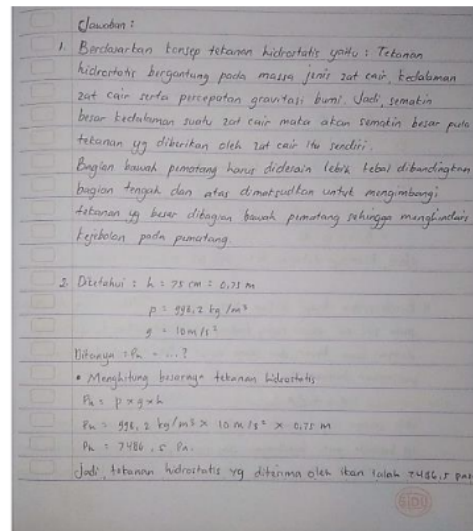 Jawaban :
1. Berdasarkan konsep tekanan hidrostatis yaitu : Tekanan
hidrostatis bergantung pada massa jenis zat cair, kedalaman
zat cair serta percepatan gravitasi bumi. Jadi, semakin
besar kedalaman suatu zat cair maka akan semakin besar pula
tekanan yg diberikan oleh zat cair itu sendiri.
Bagian bawah pematang harus didesain lebih tebal dibandingkan
bagian tengah dan atas dimaksudkan untuk mengimbangi
tekanan yg besar dibagian bawah pematang sehingga menghindari
kejebolan pada pematang.
2. Diketahui : h = 75 cm = 0,75 m
ρ = 998,2 kg/m³
g = 10 m/s²
Ditanya : Ph = ...?
• Menghitung besarnya tekanan hidrostatis
Ph = ρ × g × h
Ph = 998,2 kg/m³ × 10 m/s² × 0,75 m
Ph = 7486,5 Pa.
Jadi, tekanan hidrostatis yg diterima oleh ikan ialah 7486,5